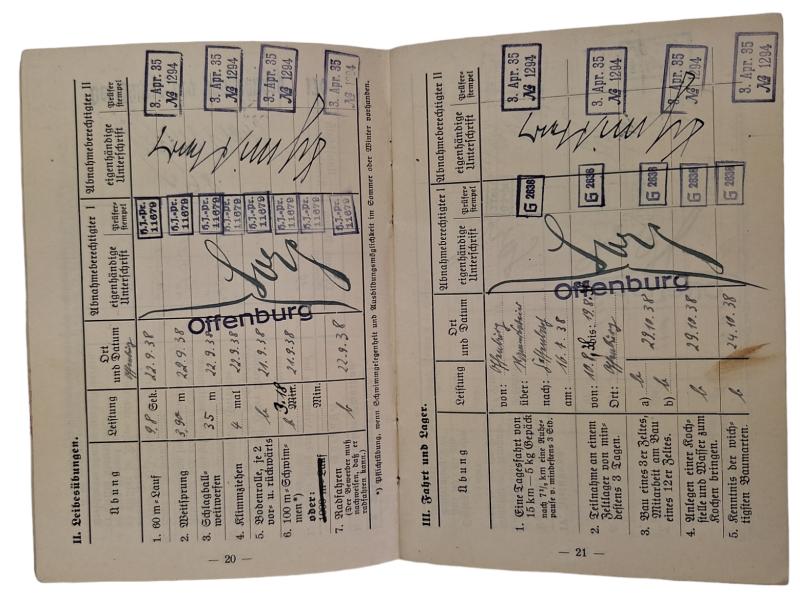 II. Leibesübungen.
Übung
Leistung
Ort
und Datum
Abnahmeberechtigter I
eigenhändige
Unterschrift
Prüfer-
stempel
Abnahmeberechtigter II
eigenhändige
Unterschrift
Prüfer-
stempel
Offenburg
1. 60 m-Lauf
9,8 Sek.
22.9.38
H.J.-Pr.
11679
3. Apr. 35
№ 1294
2. Weitsprung
m
22.9.38
H.J.-Pr.
11679
3. Schlagball-
weitwerfen
35 m
22.9.38
H.J.-Pr.
11679
3. Apr. 35
№ 1294
4. Klimmziehen
4 mal
22.9.38
H.J.-Pr.
11679
5. Bodenrolle, je 2
vor- u. rückwärts
H.J.-Pr.
11679
3. Apr. 35
№ 1294
6. 100 m-Schwim-
men*)
Min.
H.J.-Pr.
11679
oder:
Min.
H.J.-Pr.
11679
7. Radfahren
(Der Bewerber muß
nachweisen, daß er
radfahren kann.)
22.9.38
H.J.-Pr.
11679
3. Apr. 35
№ 1294
Offenburg
*) Pflichtübung, wenn Schwimmgelegenheit und Ausbildungsmöglichkeit im Sommer oder Winter vorhanden.
— 20 —
III. Fahrt und Lager.
Übung
Leistung
Ort
und Datum
Abnahmeberechtigter I
eigenhändige
Unterschrift
Prüfer-
stempel
Abnahmeberechtigter II
eigenhändige
Unterschrift
Prüfer-
stempel
1. Eine Tagesfahrt von
15 km — 5 kg Gepäck
nach 7½ km eine Ruhe-
pause v. mindestens 3 Std.
von: Offenburg
über:
nach: Offenburg
am: 38
G 2836
3. Apr. 35
№ 1294
2. Teilnahme an einem
Zeltlager von min-
destens 3 Tagen.
von: bis:
Ort: Offenburg
G 2836
3. Apr. 35
№ 1294
3. Bau eines 3er Zeltes,
Mitarbeit am Bau
eines 12er Zeltes.
a)
b)
29.10.38
G 2836
3. Apr. 35
№ 1294
4. Anlegen einer Koch-
stelle und Wasser zum
Kochen bringen.
29.10.38
G 2836
5. Kenntnis der wich-
tigsten Baumarten.
24.10.38
G 2836
3. Apr. 35
№ 1294
Offenburg
— 21 —